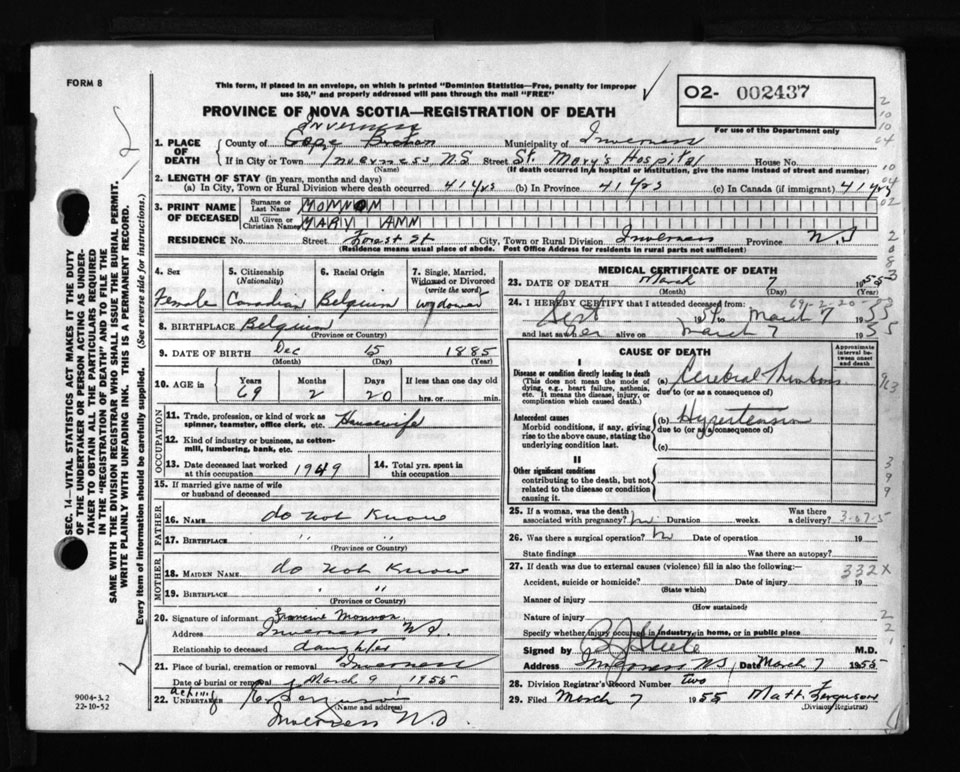 FORM 8
This form, if placed in an envelope, on which is printed "Dominion Statistics—Free, penalty for improper
use $50," and properly addressed will pass through the mail "FREE"
O2- 002437
For use of the Department only
PROVINCE OF NOVA SCOTIA—REGISTRATION OF DEATH
Inverness
1. PLACE OF DEATH County of Cape Breton Municipality of Inverness
If in City or Town Inverness N.S Street St. Mary's Hospital House No.
(Name) (If death occurred in a hospital or institution, give the name instead of street and number)
2. LENGTH OF STAY (in years, months and days)
(a) In City, Town or Rural Division where death occurred 41 yrs (b) In Province 41 yrs (c) In Canada (if immigrant) 41 yrs
3. PRINT NAME OF DECEASED Surname or Last Name MONNON
All Given or Christian Names MARY ANN
RESIDENCE No. Street Forest St City, Town or Rural Division Inverness Province N.S
(Residence means usual place of abode. Post Office Address for residents in rural parts not sufficient)
4. Sex 5. Citizenship (Nationality) 6. Racial Origin 7. Single, Married, Widowed or Divorced (write the word)
Female Canadian Belgium widower
8. BIRTHPLACE Belgium
(Province or Country)
9. DATE OF BIRTH Dec 15 1885
(Month) (Day) (Year)
10. AGE in Years Months Days If less than one day old
69 2 20 hrs. or min.
OCCUPATION
11. Trade, profession, or kind of work as spinner, teamster, office clerk, etc. Housewife
12. Kind of industry or business, as cotton-mill, lumbering, bank, etc.
13. Date deceased last worked at this occupation 1949 14. Total yrs. spent in this occupation
15. If married give name of wife or husband of deceased
FATHER
16. NAME do not know
17. BIRTHPLACE " "
(Province or Country)
MOTHER
18. MAIDEN NAME do not know
19. BIRTHPLACE " "
(Province or Country)
20. Signature of informant Monnon
Address Inverness N.S.
Relationship to deceased daughter
21. Place of burial, cremation or removal Inverness
Date of burial or removal March 9 1955
acting
22. UNDERTAKER
(Name and address)
Inverness N.S.
MEDICAL CERTIFICATE OF DEATH
23. DATE OF DEATH March 7 1955
(Month) (Day) (Year)
69-2-20
24. I HEREBY CERTIFY that I attended deceased from:
Sept 1954 to March 7 1955
and last saw her alive on March 7 1955
CAUSE OF DEATH
Approximate interval between onset and death
I
Disease or condition directly leading to death (a) Cerebral Thrombosis
(This does not mean the mode of dying, e.g., heart failure, asthenia, etc. It means the disease, injury, or complication which caused death.) due to (or as a consequence of)
Antecedent causes (b) Hypertension
Morbid conditions, if any, giving rise to the above cause, stating the underlying condition last. due to (or as a consequence of)
(c)
II
Other significant conditions contributing to the death, but not related to the disease or condition causing it.
25. If a woman, was the death associated with pregnancy? no Duration weeks. Was there a delivery?
26. Was there a surgical operation? no Date of operation 19
State findings Was there an autopsy?
27. If death was due to external causes (violence) fill in also the following: 332X
Accident, suicide or homicide? Date of injury 19
(State which)
Manner of injury
(How sustained)
Nature of injury
Specify whether injury occurred in industry, in home, or in public place
Signed by M.D.
Address Inverness N.S. Date March 7 1955
28. Division Registrar's Record Number two
29. Filed March 7 1955 Matt. Ferguson
(Division Registrar)
9004-3.2
22-10-52
SEC. 14—VITAL STATISTICS ACT MAKES IT THE DUTY
OF THE UNDERTAKER OR PERSON ACTING AS UNDER-
TAKER TO OBTAIN ALL THE PARTICULARS REQUIRED
IN THE "REGISTRATION OF DEATH" AND TO FILE THE
SAME WITH THE DIVISION REGISTRAR WHO SHALL ISSUE THE BURIAL PERMIT.
WRITE PLAINLY WITH UNFADING INK. THIS IS A PERMANENT RECORD.
Every item of information should be carefully supplied. (See reverse side for instructions.)